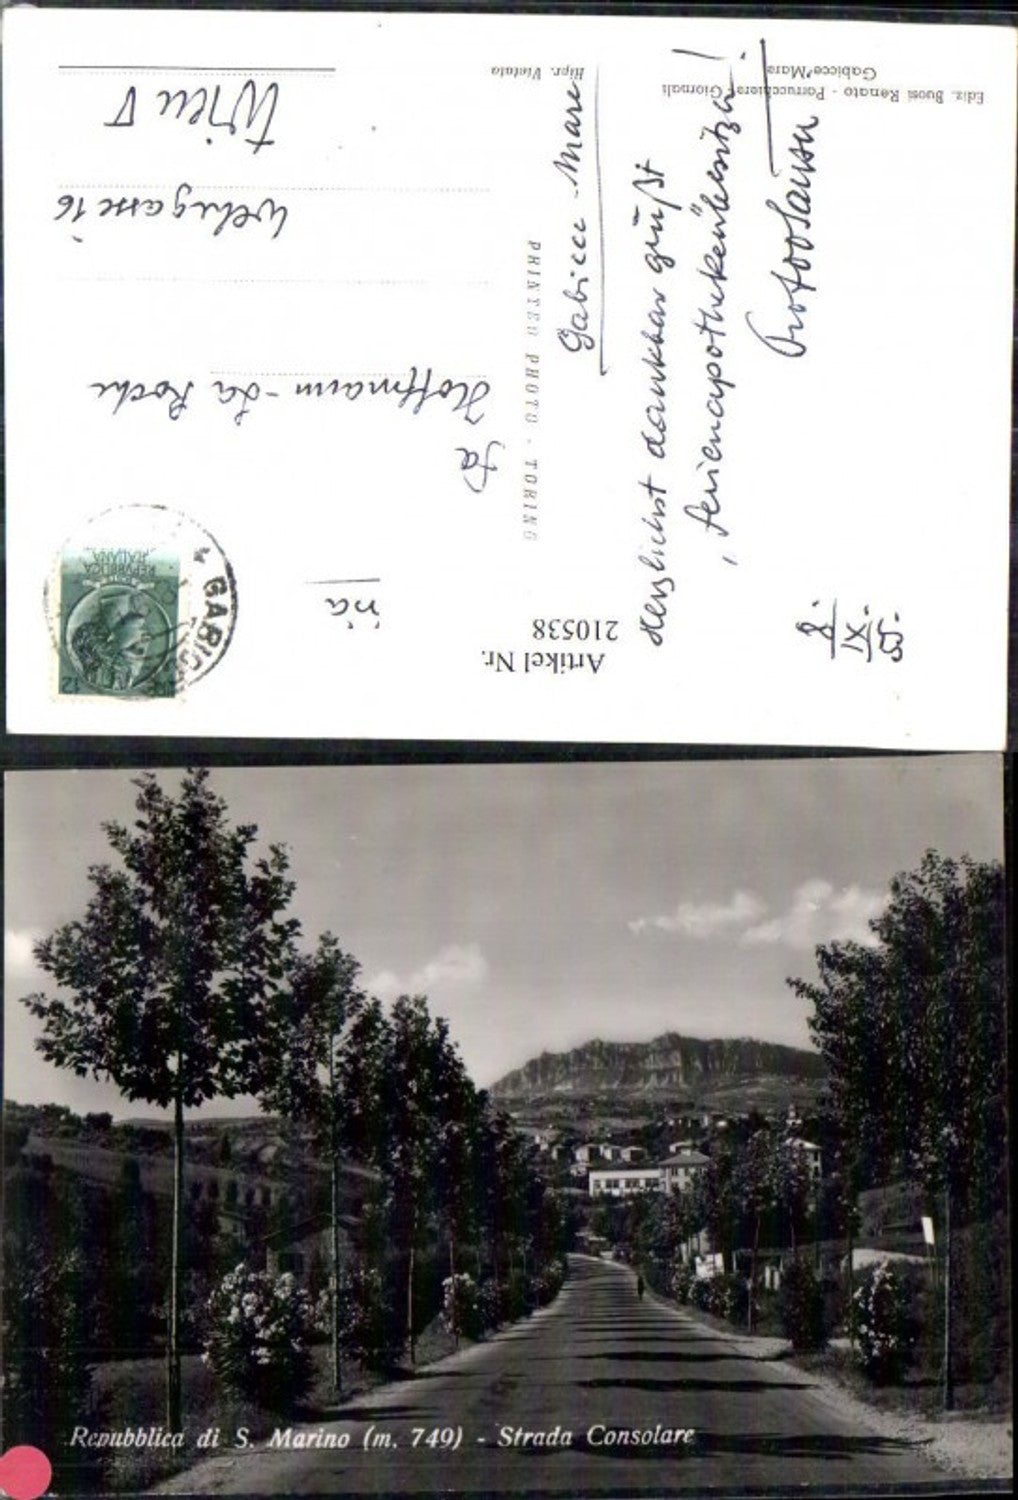 Ediz. Buosi Renato - Parrucchiere Giornali
Gabicce Mare
Ripr. Vietata
PRINTED PHOTO - TORINO
Gabicce - Mare
Herzlichst dankbar grüßt
"Ferienapothekenbesitzer"!
8.
IX.
55.
Fa
Hoffmann - La Roche
Wehrgasse 16
Wien V
REPVBBLICA
ITALIANA
POSTE
LIRE 12
GABICCE
Artikel Nr.
210538
Repubblica di S. Marino (m. 749) - Strada Consolare